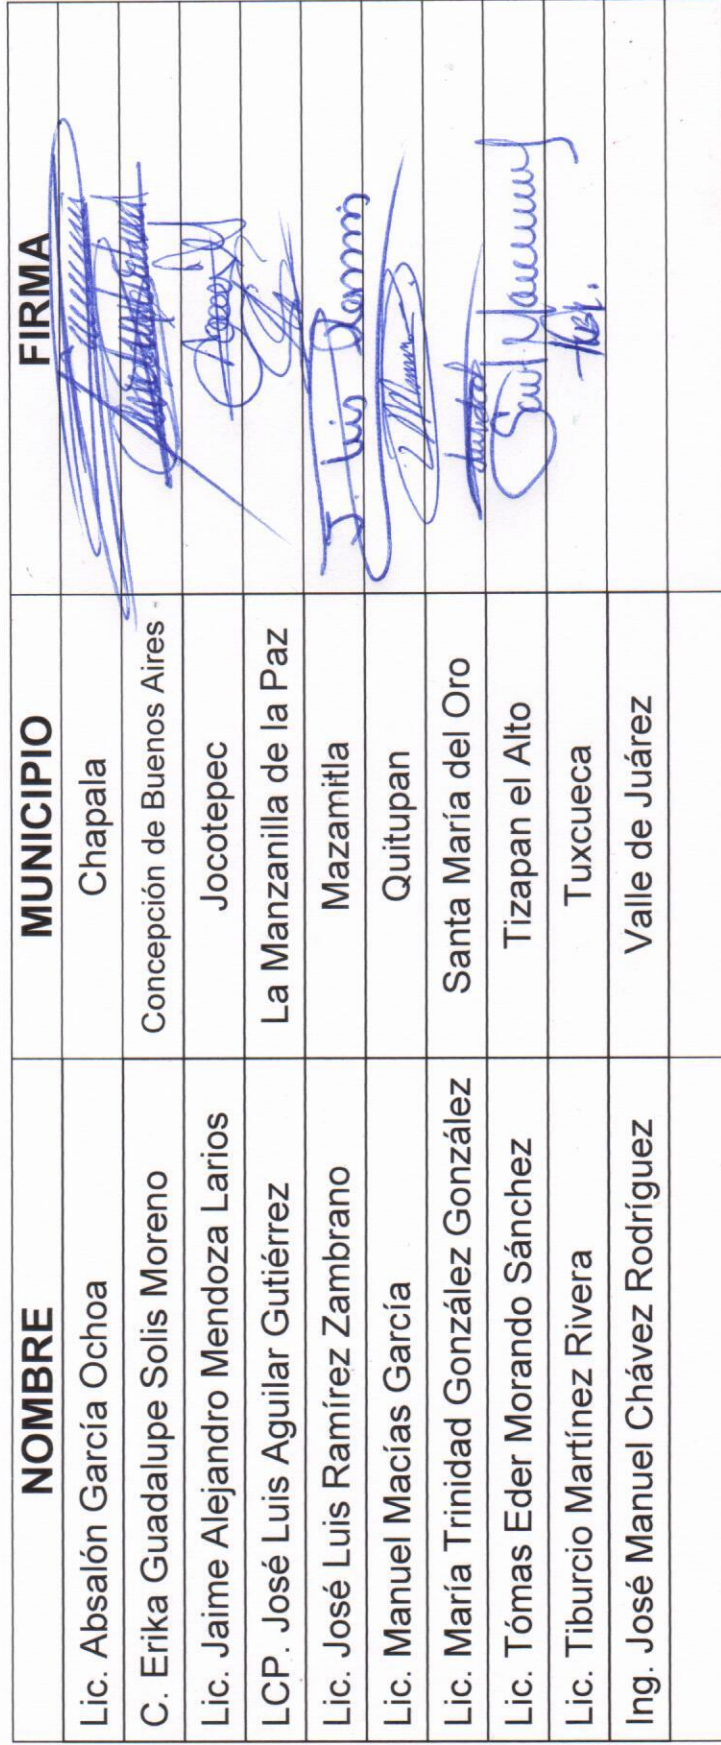 NOMBRE MUNICIPIO FIRMA
Lic. Absalón García Ochoa Chapala
C. Erika Guadalupe Solis Moreno Concepción de Buenos Aires
Lic. Jaime Alejandro Mendoza Larios Jocotepec
LCP. José Luis Aguilar Gutiérrez La Manzanilla de la Paz
Lic. José Luis Ramírez Zambrano Mazamitla J. Luis
Lic. Manuel Macías García Quitupan
Lic. María Trinidad González González Santa María del Oro
Lic. Tómas Eder Morando Sánchez Tizapan el Alto
Lic. Tiburcio Martínez Rivera Tuxcueca
Ing. José Manuel Chávez Rodríguez Valle de Juárez